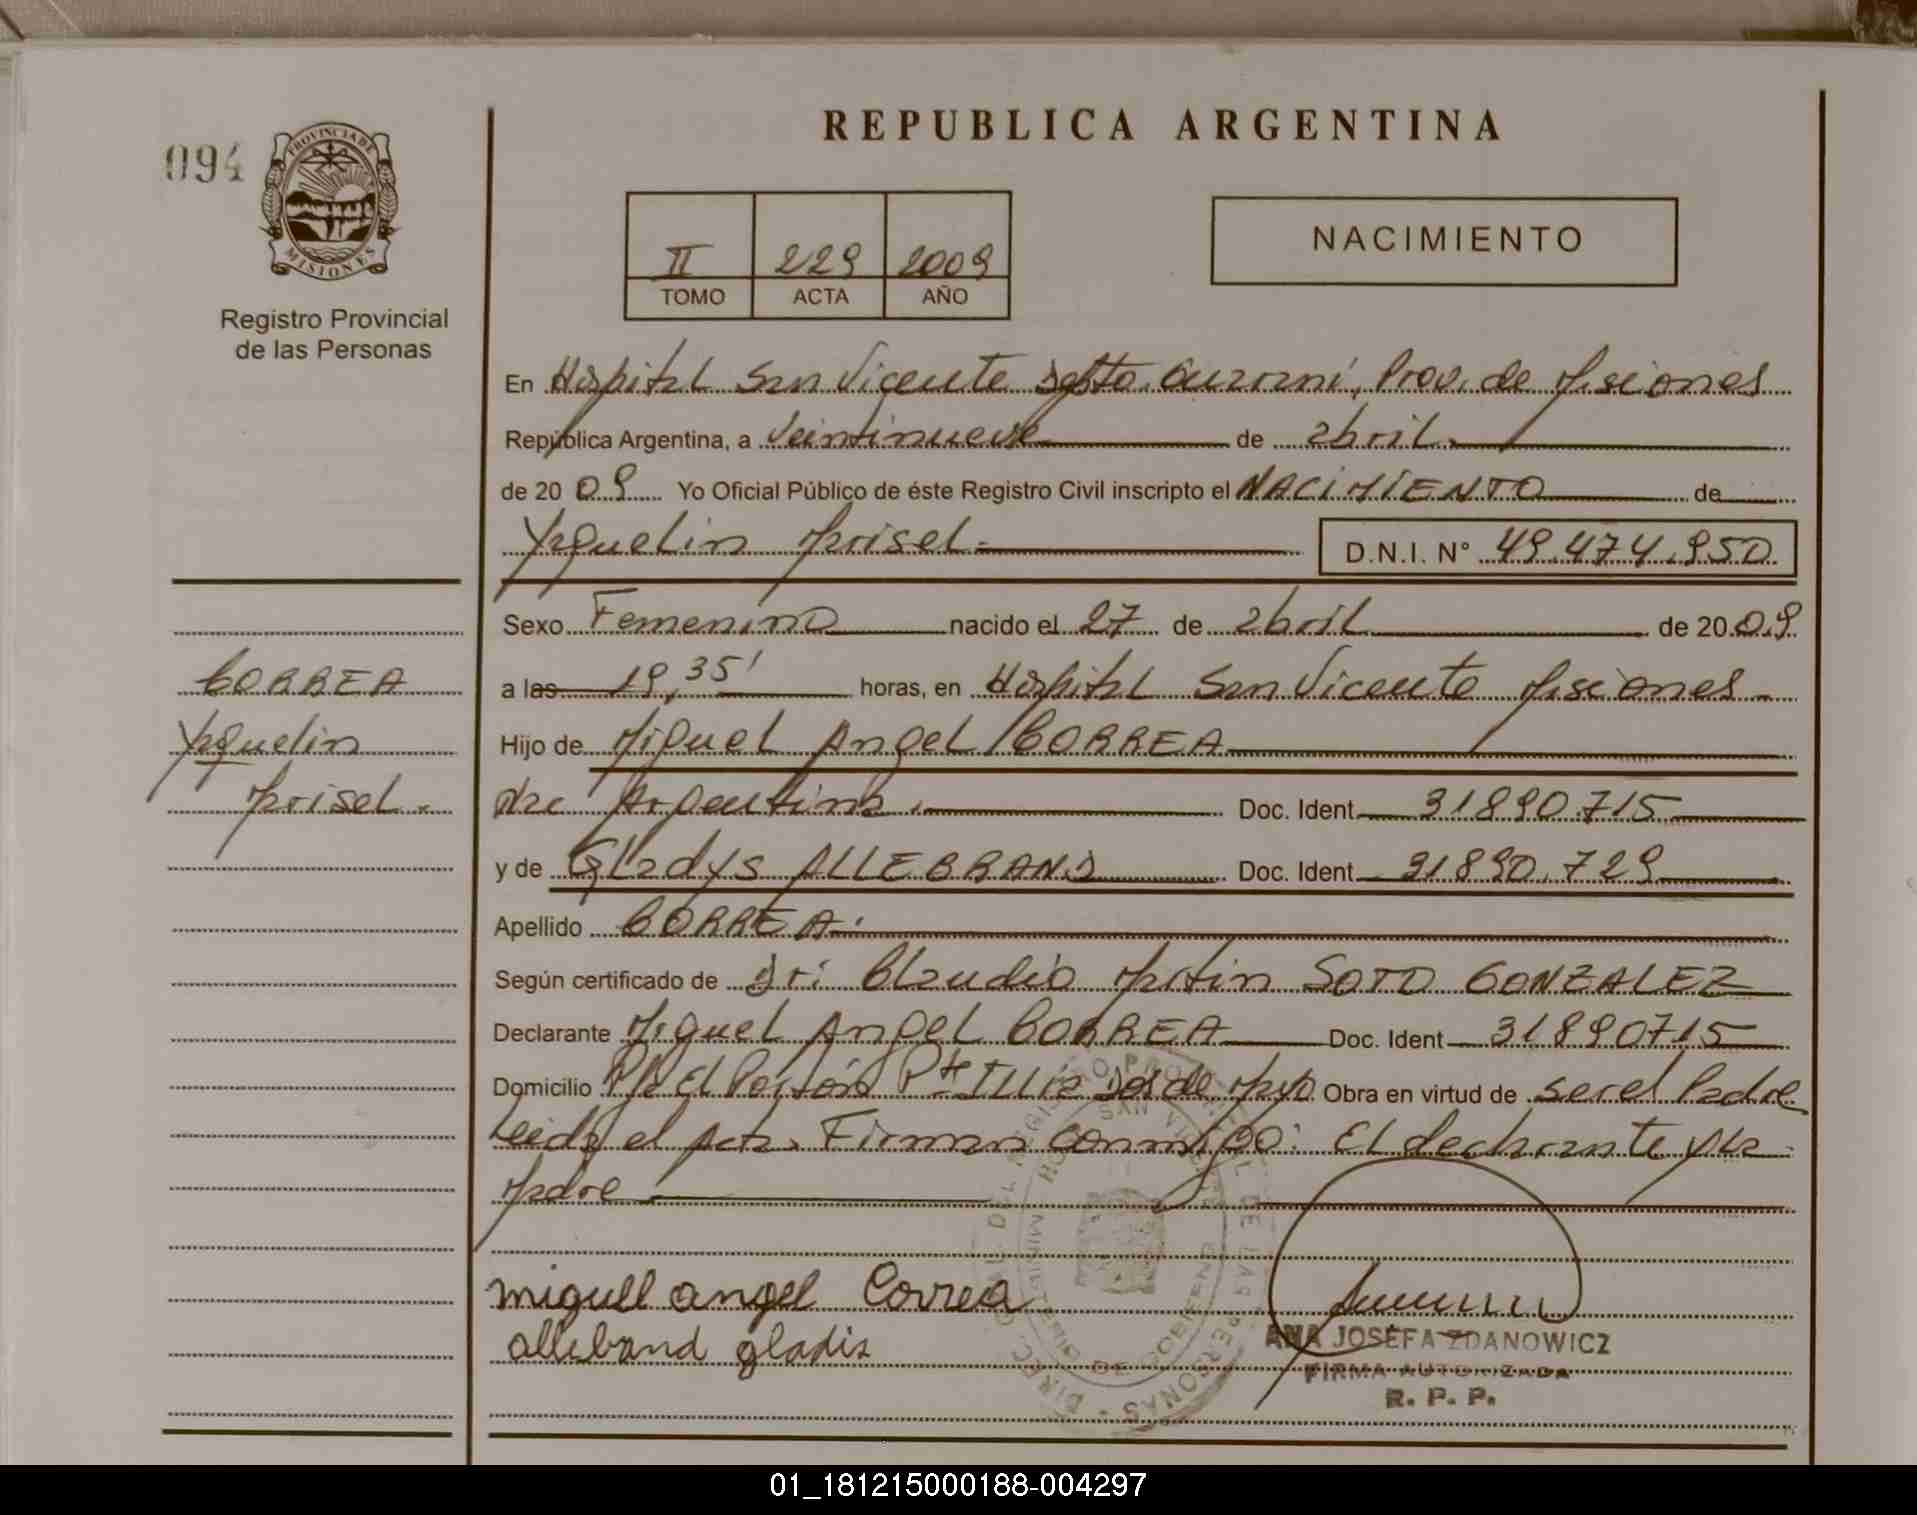 REPUBLICA ARGENTINA
094
PROVINCIA DE
MISIONES
Registro Provincial
de las Personas
II 229 2009
TOMO ACTA AÑO
NACIMIENTO
En Hospital San Vicente Dpto. Guaraní, Prov. de Misiones
República Argentina, a Veintinueve de abril.
de 2009 Yo Oficial Público de éste Registro Civil inscripto el NACIMIENTO de
Yaquelin Marisel.- D.N.I. N° 49.474.950
Sexo Femenino nacido el 27 de abril de 2009
a las 19,35' horas, en Hospital San Vicente Misiones
Hijo de Miguel Angel CORREA
CORREA
Yaquelin
Marisel.-
Nac Argentina. Doc. Ident 31890.715
y de Gladys ALLEBRAND Doc. Ident 31890.729
Apellido CORREA.
Según certificado de Dr: Claudio Martin SOTO GONZALEZ
Declarante Miguel Angel CORREA Doc. Ident 31890715
Domicilio El Portón Dos de Mayo Obra en virtud de ser el Padre
Leida el Acta. Firman conmigo: El declarante y la
Madre
miguel angel Correa
alleband gladis
ANA JOSEFA ZDANOWICZ
FIRMA AUTORIZADA
R. P. P.
01_181215000188-004297